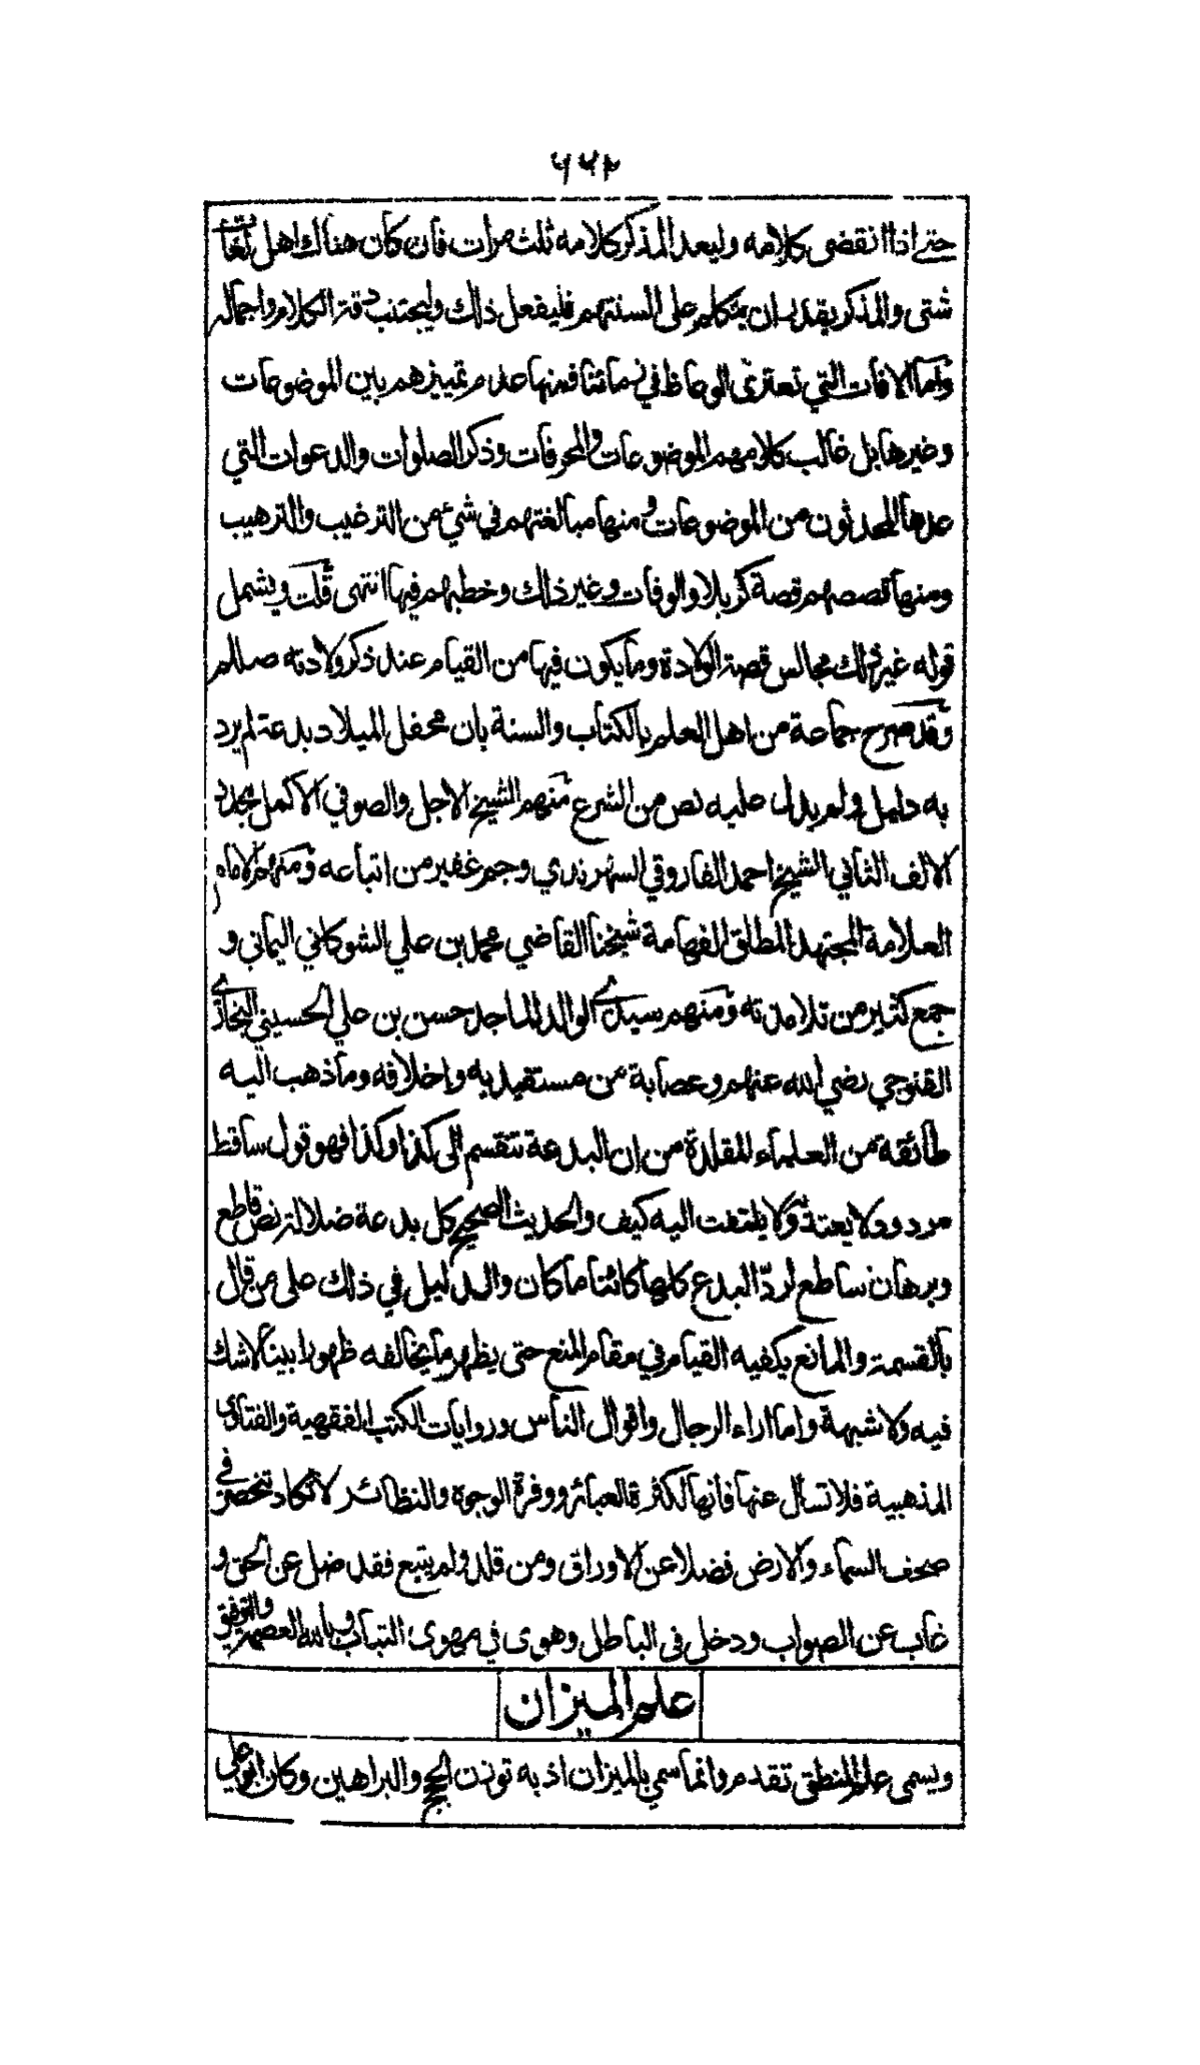 ٦٦٢
حتى اذا انقضى كلامه وليعد المذكر كلامه ثلث مرات فان كان هناك اهل لغات
شتى والمذكر يقدر ان يتكلم على السنتهم فليفعل ذلك وليجتنب دقة الكلام واجماله
واما الآفات التي تعتري الوعاظ في زماننا فمنها عدم تمييزهم بين الموضوعات
وغيرها بل غالب كلامهم الموضوعات والمحرفات وذكر الصلوات والدعوات التي
عدها المحدثون من الموضوعات ومنها مبالغتهم في شئ من الترغيب والترهيب
ومنها قصصهم قصة كربلا والوفات وغير ذلك وخطبهم فيها انتهى قلت ويشمل
قوله غير ذلك مجالس قصة الولادة وما يكون فيها من القيام عند ذكر ولادته صللم
وقد صرح جماعة من اهل العلم بالكتاب والسنة بان محفل الميلاد بدعة لم يرد
به دليل ولم يدل عليه نص من الشرع منهم الشيخ الاجل والصوفي الاكمل مجدد
الالف الثاني الشيخ احمد الفاروقي السهرندي وجم غفير من اتباعه ومنهم الامام
العلامة المجتهد المطلق الفهامة شيخنا القاضي محمد بن علي الشوكاني اليماني و
جمع كثير من تلامذته ومنهم سيدي الوالد الماجد حسن بن علي الحسيني البخاري
القنوجي رضي الله عنهم وعصابة من مستفيديه واخلافه وما ذهب اليه
طائفة من العلماء المقلدة من ان البدعة تنقسم الى كذا وكذا فهو قول ساقط
مردود ولا يعتد به ولا يلتفت اليه كيف والحديث الصحيح كل بدعة ضلالة نص قاطع
وبرهان ساطع لرد البدع كلها كائنا ما كان والدليل في ذلك على من قال
بالقسمة والمانع يكفيه القيام في مقام المنع حتى يظهر ما يخالفه ظهورا بينا لا شك
فيه ولا شبهة واما اراء الرجال واقوال الناس وروايات الكتب الفقهية والفتاوى
المذهبية فلا تسأل عنها فانها لكثرة العبائر ووفرة الوجوه والنظائر لا تكاد تنحصر في
صحف السماء والارض فضلا عن الاوراق ومن قلد ولم يتبع فقد ضل عن الحق و
خاب عن الصواب ودخل في الباطل وهوى في مهوى التباب وبالله العصمة والتوفيق
علم الميزان
ويسمى علم المنطق تقدم وانما سمي بالميزان اذ به توزن الحجج والبراهين وكان ابو علي